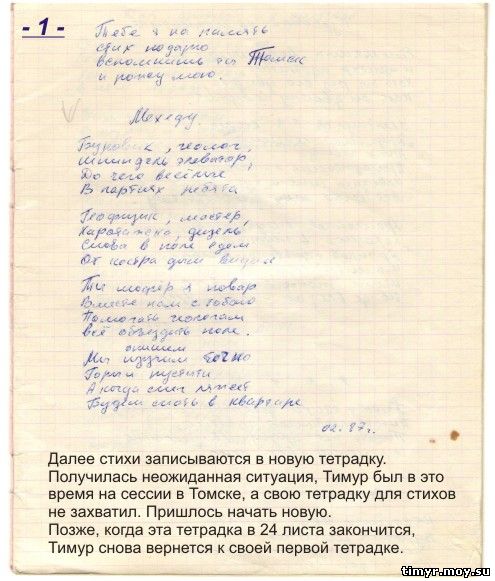 - 1 -
Тебе я на память
стих подарю
вспомнишь ты Томск
и рожу мою.
Мехеду.
Буровик, геолог,
Шпиндель элеватор,
До чего весёлые
В партиях ребята
Геофизик, мастер,
Каротажка, дизель
Снова в поле едем
От костра дым
Ты шофёр я повар
Вместе нам с тобою
Помогать геологам
всё объездить поле.
опишем
Мы изучим точно
Горы и пустыни
А когда снег ляжет
Будем спать в квартире
02.87г.
Далее стихи записываются в новую тетрадку.
Получилась неожиданная ситуация, Тимур был в это
время на сессии в Томске, а свою тетрадку для стихов
не захватил. Пришлось начать новую.
Позже, когда эта тетрадка в 24 листа закончится,
Тимур снова вернется к своей первой тетрадке.
timyr.moy.su